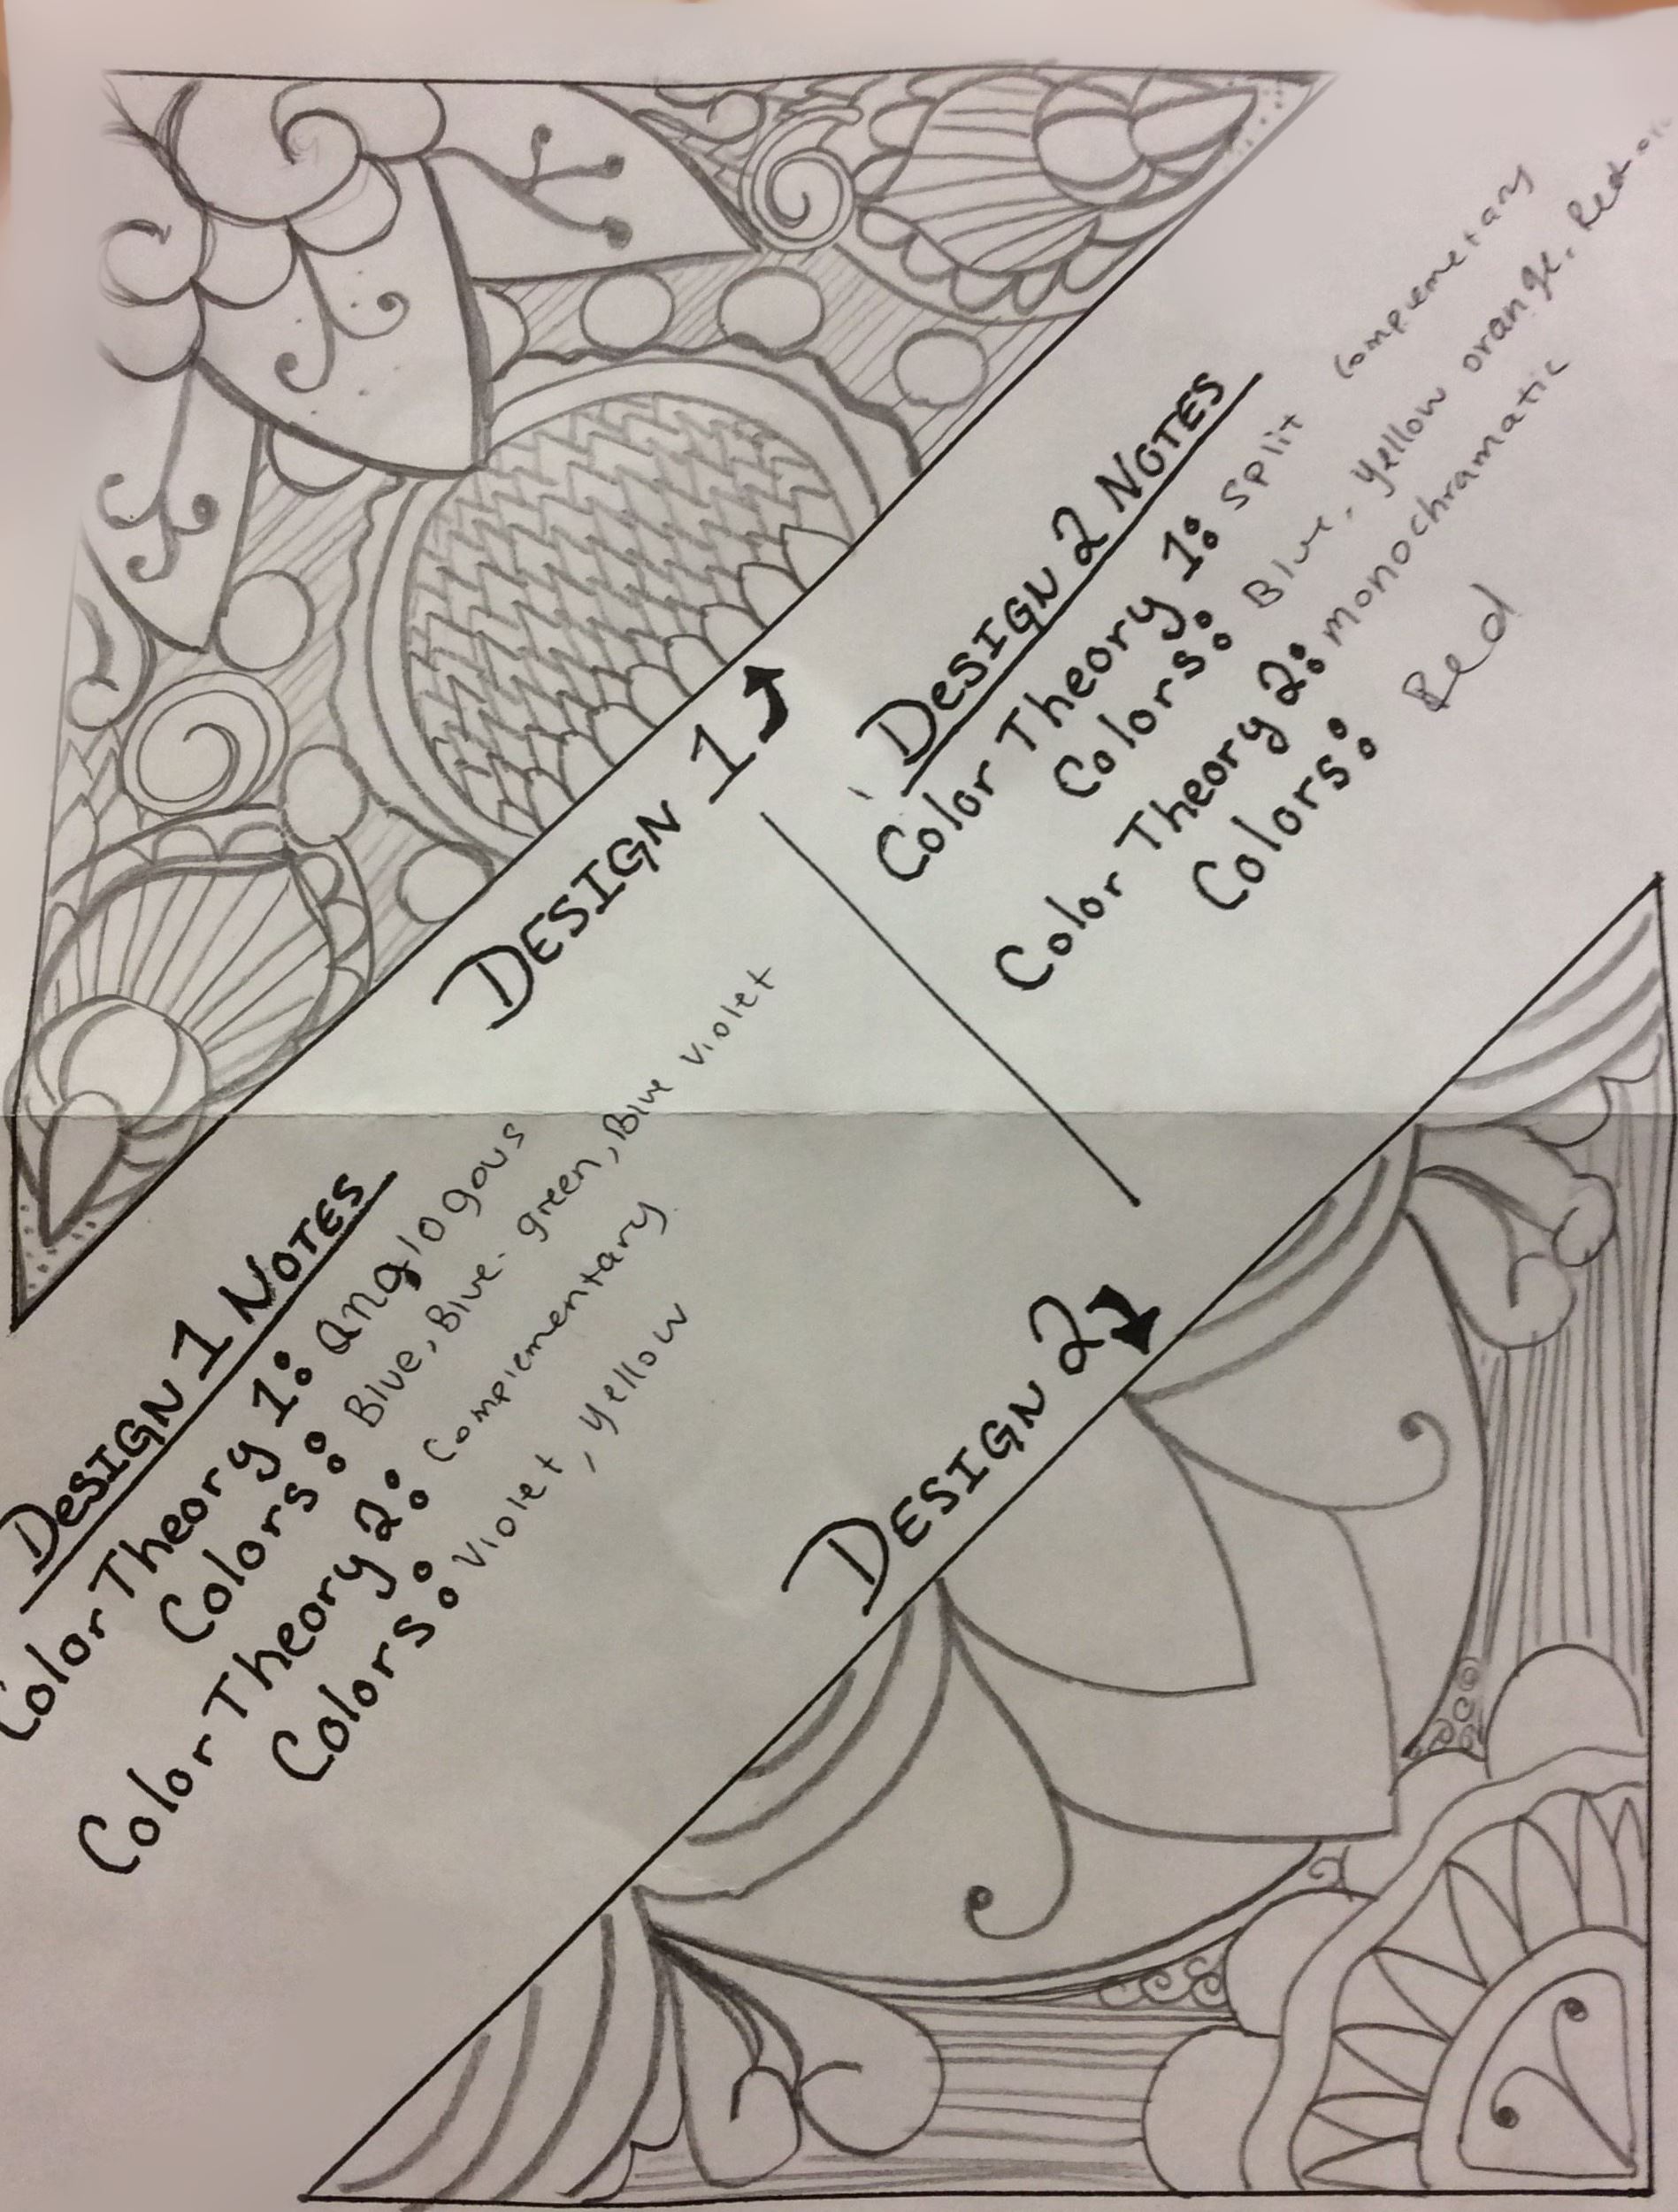 DESIGN 1
DESIGN 2 NOTES
Color Theory 1: Split Complemetary
Colors: Blue, yellow orange, Red-
Color Theory 2: monochramatic
Colors: Red
DESIGN 1 NOTES
Color Theory 1: anglogous
Colors: Blue, Blue-green, Blue violet
Color Theory 2: Complementary
Colors: violet, yellow
DESIGN 2